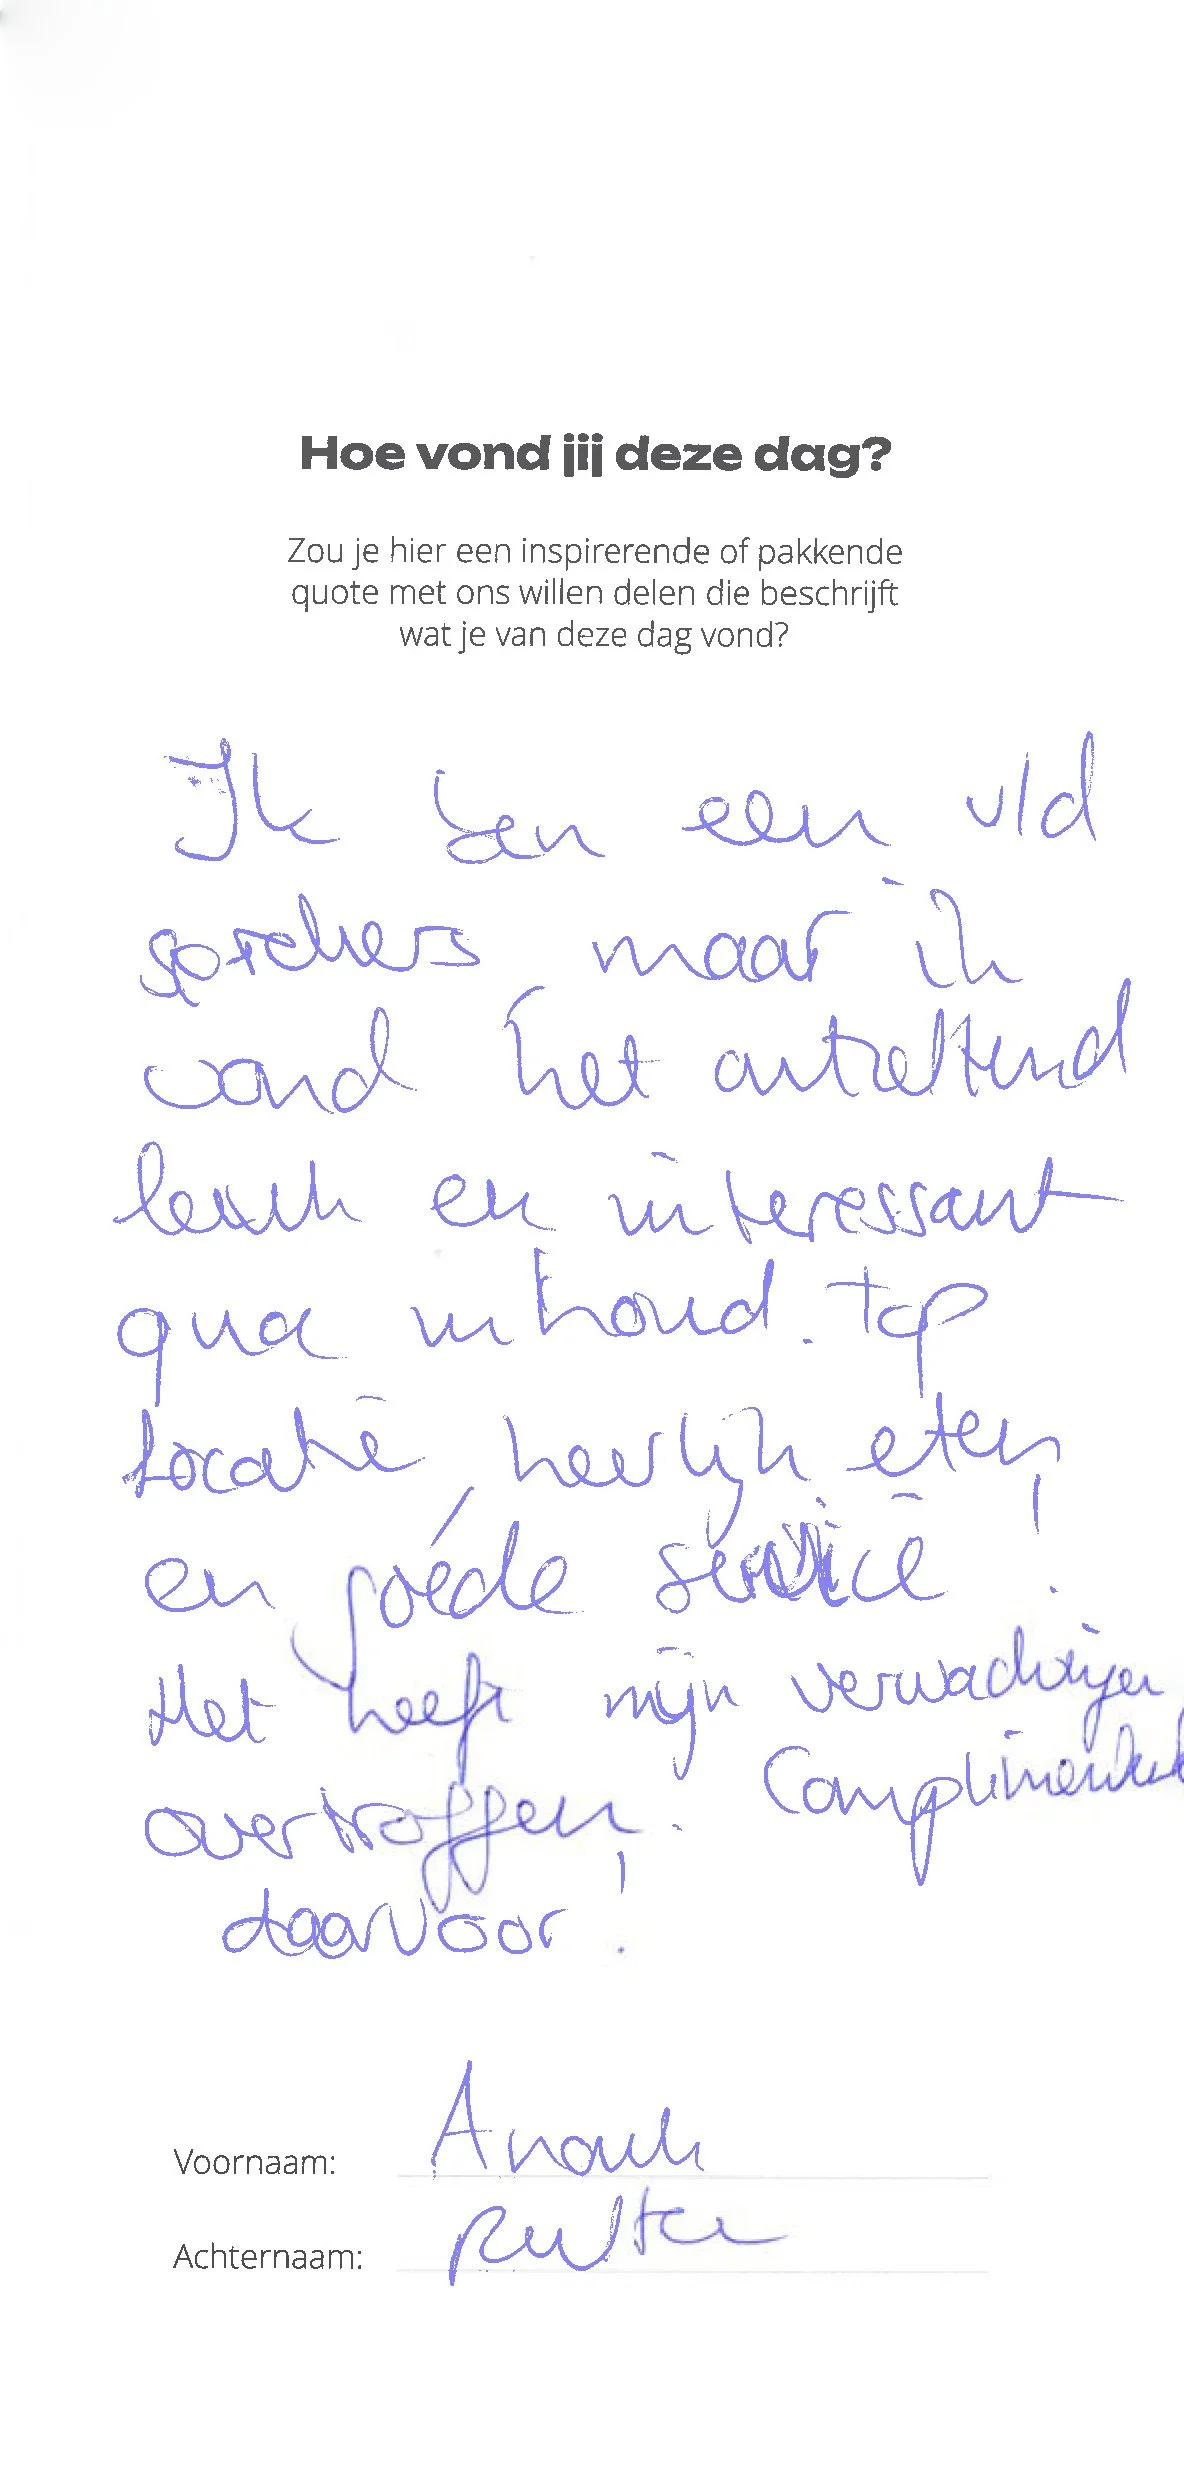 Hoe vond jij deze dag?
Zou je hier een inspirerende of pakkende
quote met ons willen delen die beschrijft
wat je van deze dag vond?
Ik ben een
maar ik
vond het ontzettend
leuk en interessant
qua inhoud. Top
locatie, heerlijk eten
en goede service!
Het heeft mijn verwachtingen
overtroffen. Complimenten
daarvoor!
Voornaam: Anouk
Achternaam: